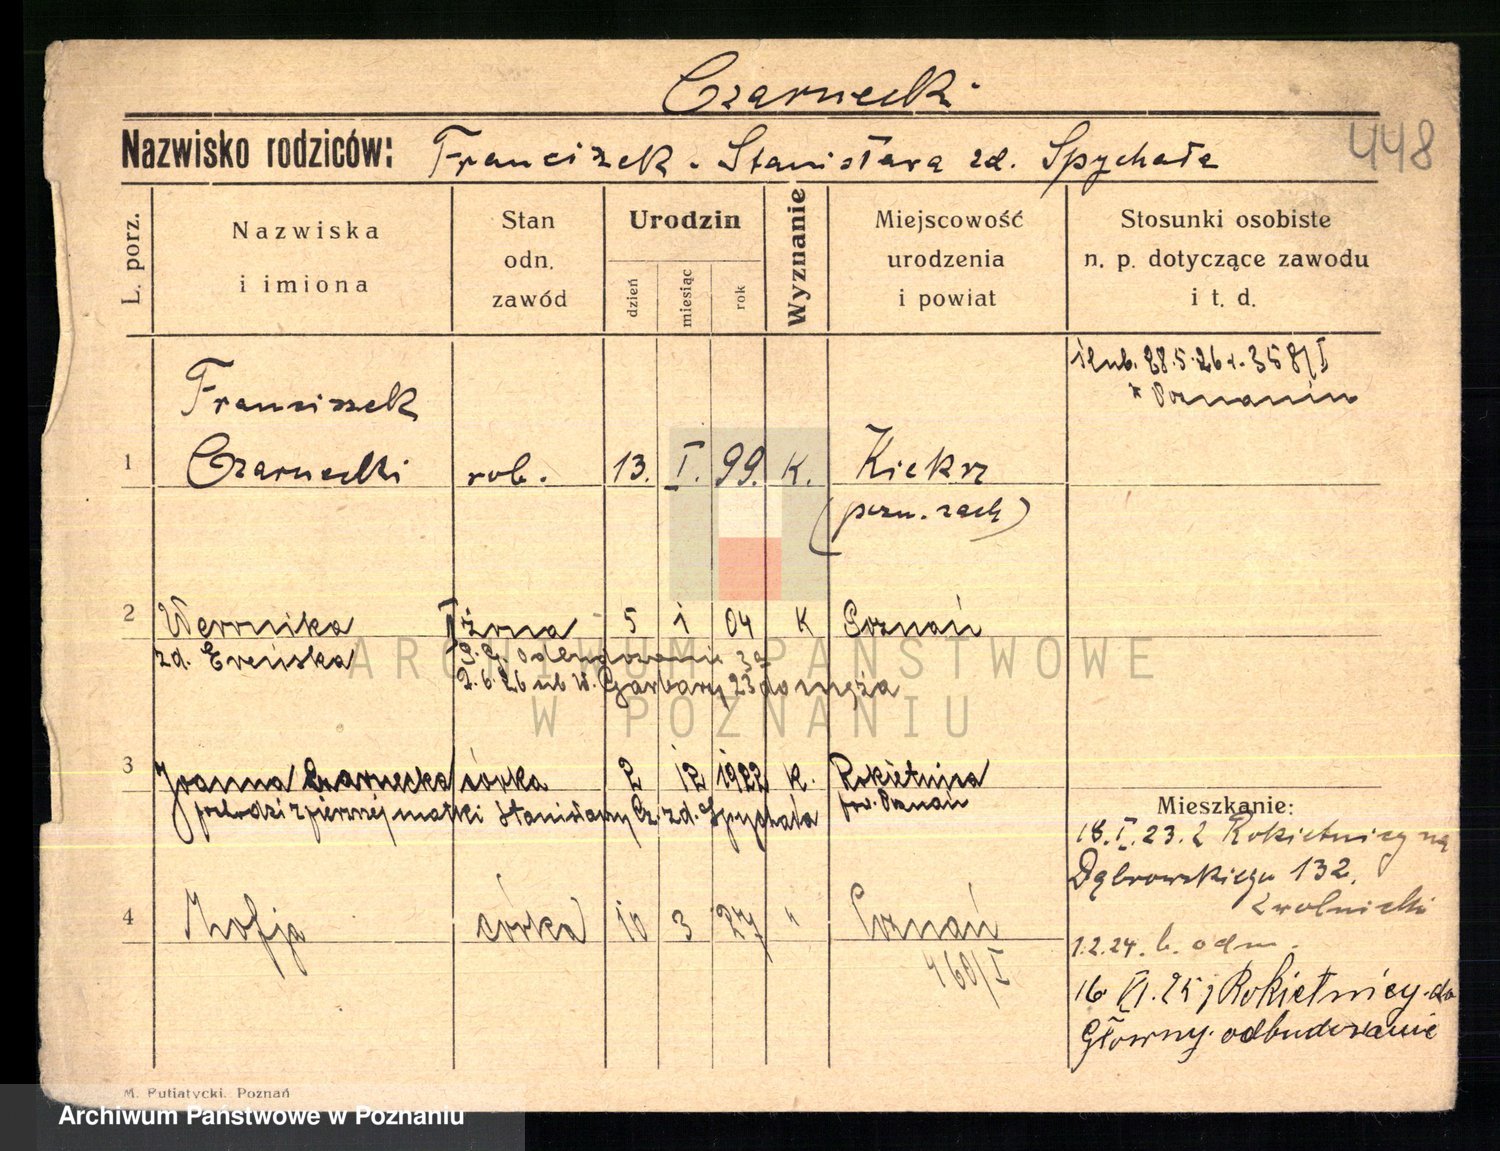 Czarnecki
Nazwisko rodziców: Franciszek - Stanisława zd. Spychała
448
L. porz.
Nazwiska
i imiona
Stan
odn.
zawód
Urodzin
dzień
miesiąc
rok
Wyznanie
Miejscowość
urodzenia
i powiat
Stosunki osobiste
n. p. dotyczące zawodu
i t. d.
ślub. 28.5.26 r. 358/I
w Poznaniu
Franciszek
1 Czarnecki rob. 13. I. 99. K. Kiekrz
(pozn. zach)
2 Weronika II żona 5 1 04 K Poznań
zd.
2.6.26 ub W. Garbary 23 do męża
3 Joanna Czarnecka córka 2 12 1922 k. Rokietnica
pochodzi z pierwszej matki Stanisławy Cz. zd. Spychała
pow. Poznań
4 Zofja córka 10 3 27 " Poznań
460/I
Mieszkanie:
18.I.23. z Rokietnicy na
Dąbrowskiego 132.
1.2.24. b. odm.
16 VI.25 z Rokietnicy do
Główny. odbudowanie
M. Putiatycki. Poznań
ARCHIWUM PAŃSTWOWE
W POZNANIU
Archiwum Państwowe w Poznaniu